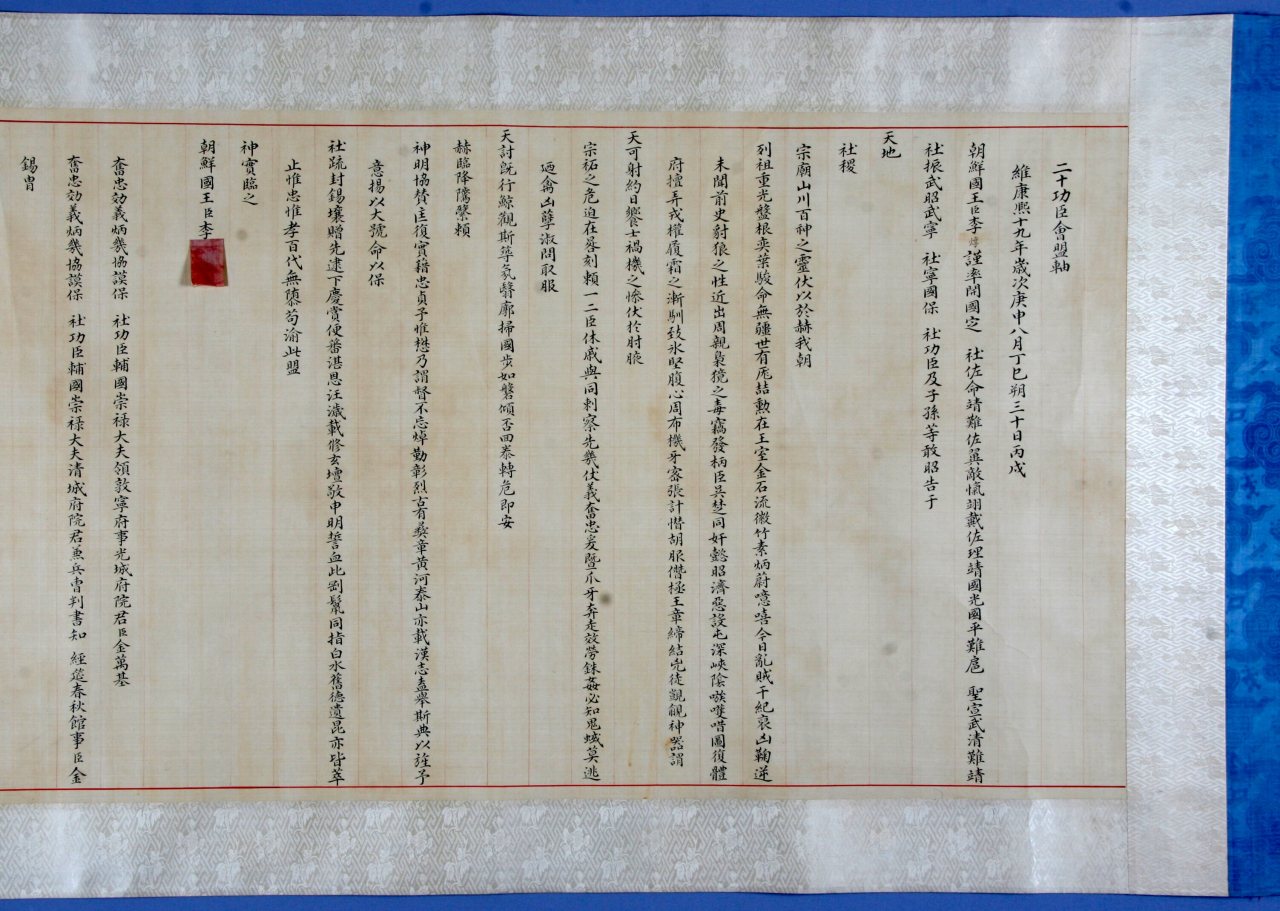 二十功臣會盟軸
維康熙十九年歲次庚申八月丁巳朔三十日丙戌
朝鮮國王臣李 謹率開國定 社佐命靖難佐翼敵愾翊戴佐理靖國光國平難扈 聖宣武清難靖
社振武昭武寧 社寧國保 社功臣及子孫等敢昭告于
天地
社稷
宗廟山川百神之靈伏以於赫我朝
列祖重光盤根奕葉駿命無疆世有厖喆勳在王室金石流徽竹素炳蔚噫嘻今日亂賊干紀裒凶鞠逆
未聞前史豺狼之性近出周親梟獍之毒竊發柄臣吳楚同奸懿昭濟惡設屯深峽陰嗾嘍唶圖復體
府擅弄戎權履霜之漸馴致氷堅腹心周布機牙密張計憯胡服僭極王章締結兇徒覬覦神器謂
天可射約日饗士禍機之慘伏於肘腋
宗祏之危迫在晷刻賴一二臣休戚與同刺察先幾仗義奮忠爰曁爪牙奔走效勞銖姦必知鬼蜮莫逃
廼禽凶孽淑問取服
天討旣行鯨觀斯築氛翳廓掃國步如磐傾否回泰轉危即安
赫臨降隲繄賴
神明協贊匡復實藉忠貞予惟懋乃謂督不忘焯勤彰烈古有彜章黃河泰山亦載漢志盍擧斯典以旌予
意揚以大號命以保
社疏封錫壤贈先逮下慶賞便蕃湛恩汪濊載修玄壇敬申明誓血此剛鬣同指白水舊德遺昆亦皆萃
止惟忠惟孝百代無隳苟渝此盟
神實臨之
朝鮮國王臣李
奮忠効義炳幾協謨保 社功臣輔國崇祿大夫領敦寧府事光城府院君臣金萬基
奮忠効義炳幾協謨保 社功臣輔國崇祿大夫清城府院君兼兵曹判書知 經筵春秋館事臣金
錫胄